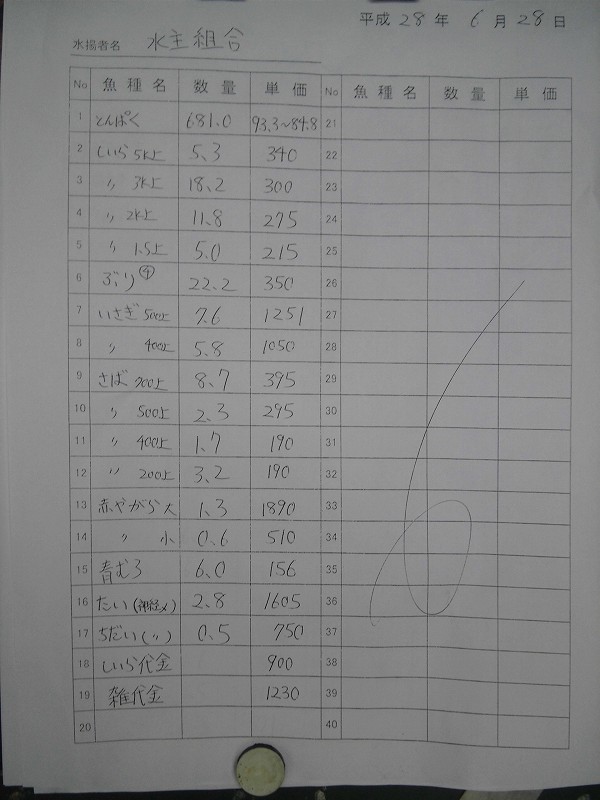 平成 28 年 6 月 28 日
水揚者名 水主組合
No 魚種名 数量 単価 No 魚種名 数量 単価
1 とんぱく 681.0 93.3~84.8 21
2 しいら 5K上 5.3 340 22
3 〃 3K上 18.2 300 23
4 〃 2K上 11.8 275 24
5 〃 1.5上 5.0 215 25
6 ぶり 22.2 350 26
7 いさぎ 500上 7.6 1251 27
8 〃 400上 5.8 1050 28
9 さば 700上 8.7 395 29
10 〃 500上 2.3 295 30
11 〃 400上 1.7 190 31
12 〃 200上 3.2 190 32
13 赤やがら 大 1.3 1890 33
14 〃 小 0.6 510 34
15 青むろ 6.0 156 35
16 たい(神経〆) 2.8 1605 36
17 ちだい(〃) 0.5 750 37
18 しいら代金 900 38
19 雑代金 1230 39
20 40